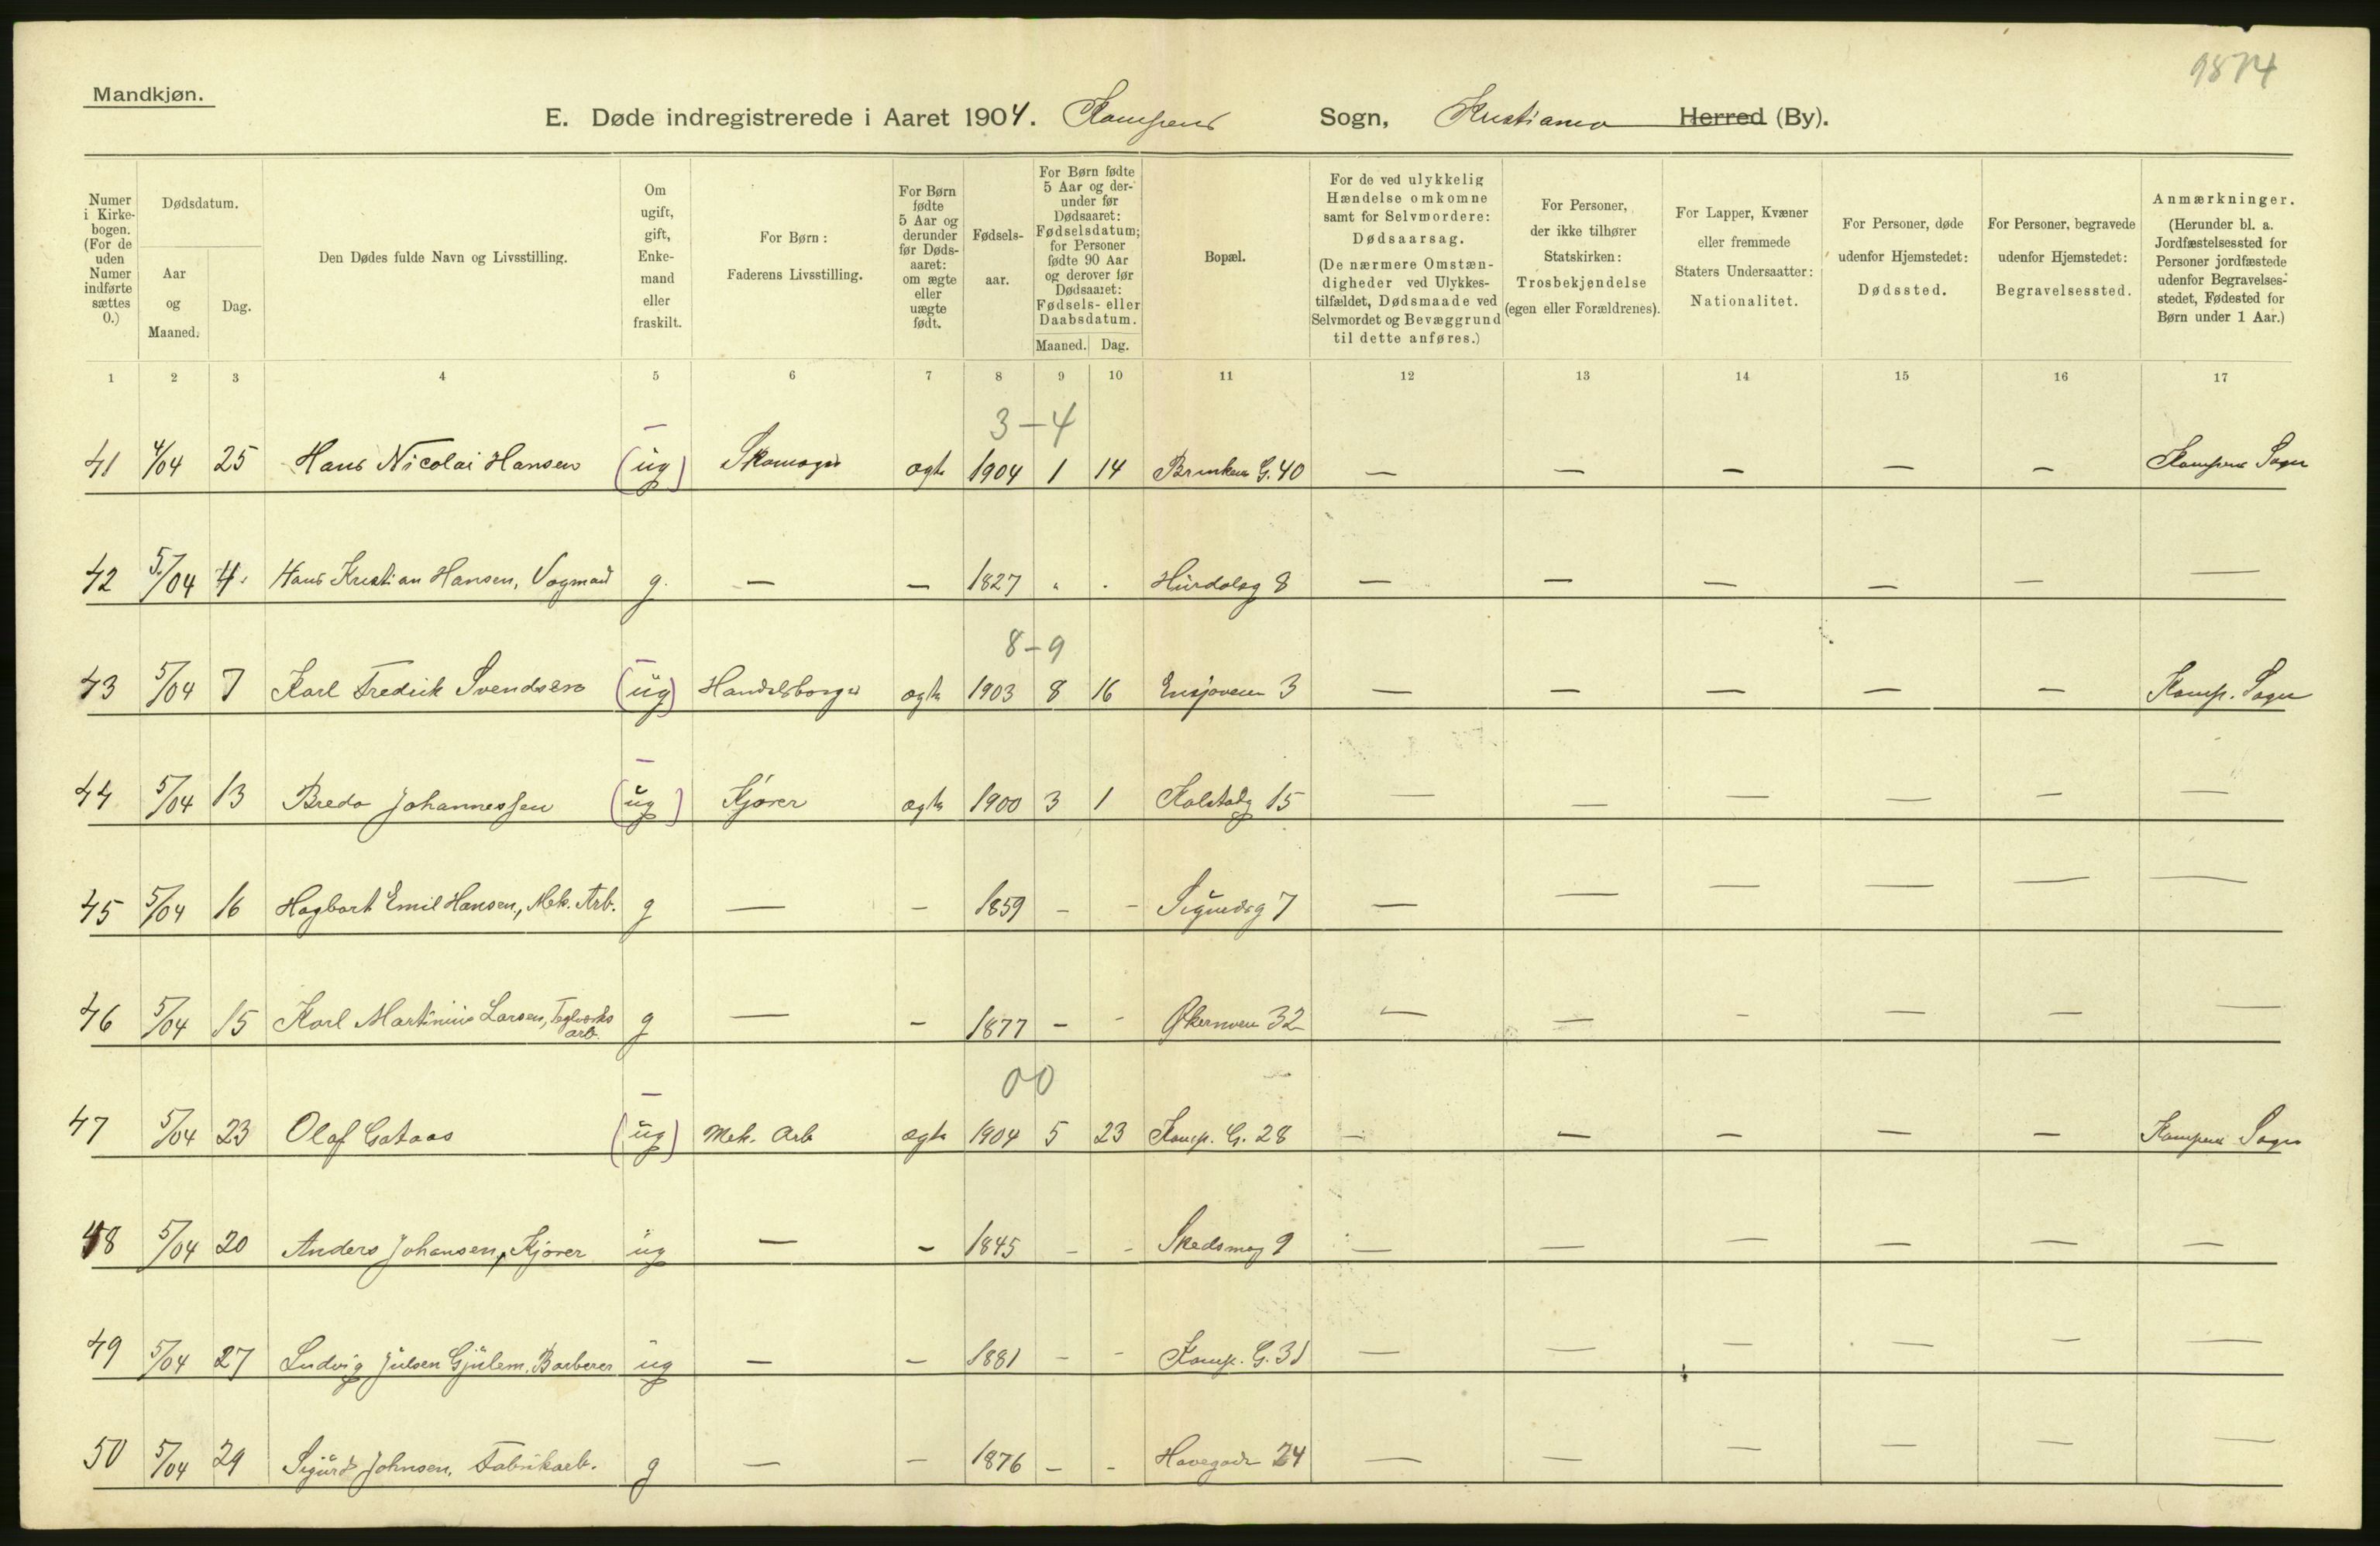 9874
Mandkjøn.
E. Døde indregistrerede i Aaret 1904. Kampens Sogn, Kristiania Herred (By).
Numer i Kirkebogen. (For de uden Numer indførte sættes 0.)
Dødsdatum.
Aar og Maaned.
Dag.
Den Dødes fulde Navn og Livsstilling.
Om ugift, gift, Enkemand eller fraskilt.
For Børn: Faderens Livsstilling.
For Børn fødte 5 Aar og derunder før Dødsaaret: om ægte eller uægte født.
Fødselsaar.
For Børn fødte 5 Aar og derunder før Dødsaaret: Fødselsdatum; for Personer fødte 90 Aar og derover før Dødsaaret: Fødsels- eller Daabsdatum.
Maaned. Dag.
Bopæl.
For de ved ulykkelig Hændelse omkomne samt for Selvmordere: Dødsaarsag. (De nærmere Omstændigheder ved Ulykkestilfældet, Dødsmaade ved Selvmordet og Bevæggrund til dette anføres.)
For Personer, der ikke tilhører Statskirken: Trosbekjendelse (egen eller Forældrenes).
For Lapper, Kvæner eller fremmede Staters Undersaatter: Nationalitet.
For Personer, døde udenfor Hjemstedet: Dødssted.
For Personer, begravede udenfor Hjemstedet: Begravelsessted.
Anmærkninger. (Herunder bl. a. Jordfæstelsessted for Personer jordfæstede udenfor Begravelsesstedet, Fødested for Børn under 1 Aar.)
1 2 3 4 5 6 7 8 9 10 11 12 13 14 15 16 17
3-4
41 4/04 25 Hans Nicolai Hansen (ug) Skomager ægte 1904 1 14 Brinken G. 40 — — — — — Kampens Sogn
42 5/04 4. Hans Kristian Hansen, Vogmand g. — — 1827 " . Hurdalsg 8 — — — — — —
8-9
43 5/04 7 Karl Fredrik Svendsen (ug) Handelsborger ægte 1903 8 16 Ensjøveien 3 — — — — — Kamp. Sogn
44 5/04 13 Bredo Johannessen (ug) Kjører ægte 1900 3 1 Kolstadg 15 — — — — — —
45 5/04 16 Hagbart Emil Hansen, Mek. Arb. g — — 1859 - - Sigurdsg 7 — — — — — —
46 5/04 15 Karl Martinius Larsen, Teglverks arb. g — — 1877 - - Økernveien 32 — — — — — —
00
47 5/04 23 Olaf Gataas (ug) Mek. Arb ægte 1904 5 23 Kamp. G. 28 — — — — — Kampens Sogn
48 5/04 20 Anders Johansen, Kjører ug — — 1845 - - Skedsmog 9 — — — — — —
49 5/04 27 Ludvig Julsen Gjulem, Barberer ug — — 1881 - - Kamp. G. 31 — — — — — —
50 5/04 29 Sigurd Johnsen, Fabrikarb. g — — 1876 - - Havegade 24 — — — — — —